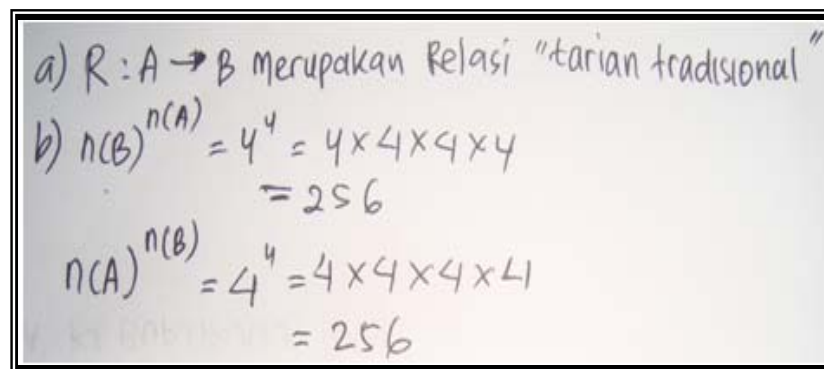 a) R : A → B merupakan Relasi "tarian tradisional"
b) n(B)^n(A) = 4^4 = 4 × 4 × 4 × 4
= 256
n(A)^n(B) = 4^4 = 4 × 4 × 4 × 4
= 256